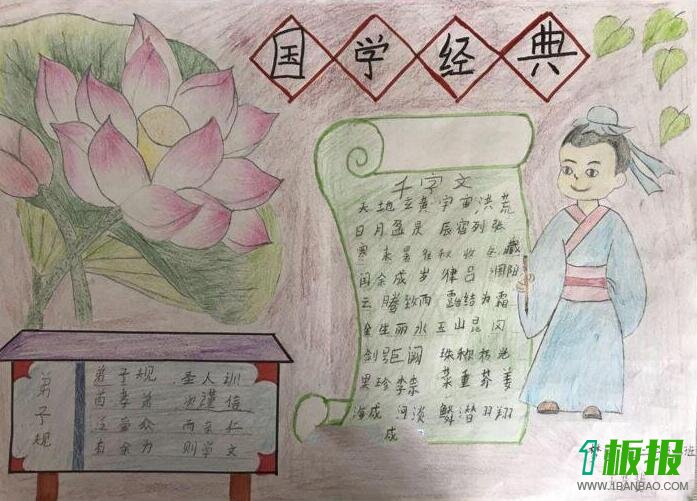 国学经典
千字文
天地玄黄宇宙洪荒
日月盈昃 辰宿列张
寒来暑往秋收冬藏
闰余成岁 律吕调阳
云腾致雨 露结为霜
金生丽水 玉山昆冈
剑号巨阙 珠称夜光
果珍李柰 菜重芥姜
海成 河淡 鳞潜羽翔
成
弟子规
弟子规 圣人训
首孝弟 次谨信
泛爱众 而亲仁
有余力 则学文
班
1板报
WWW.1BANBAO.COM